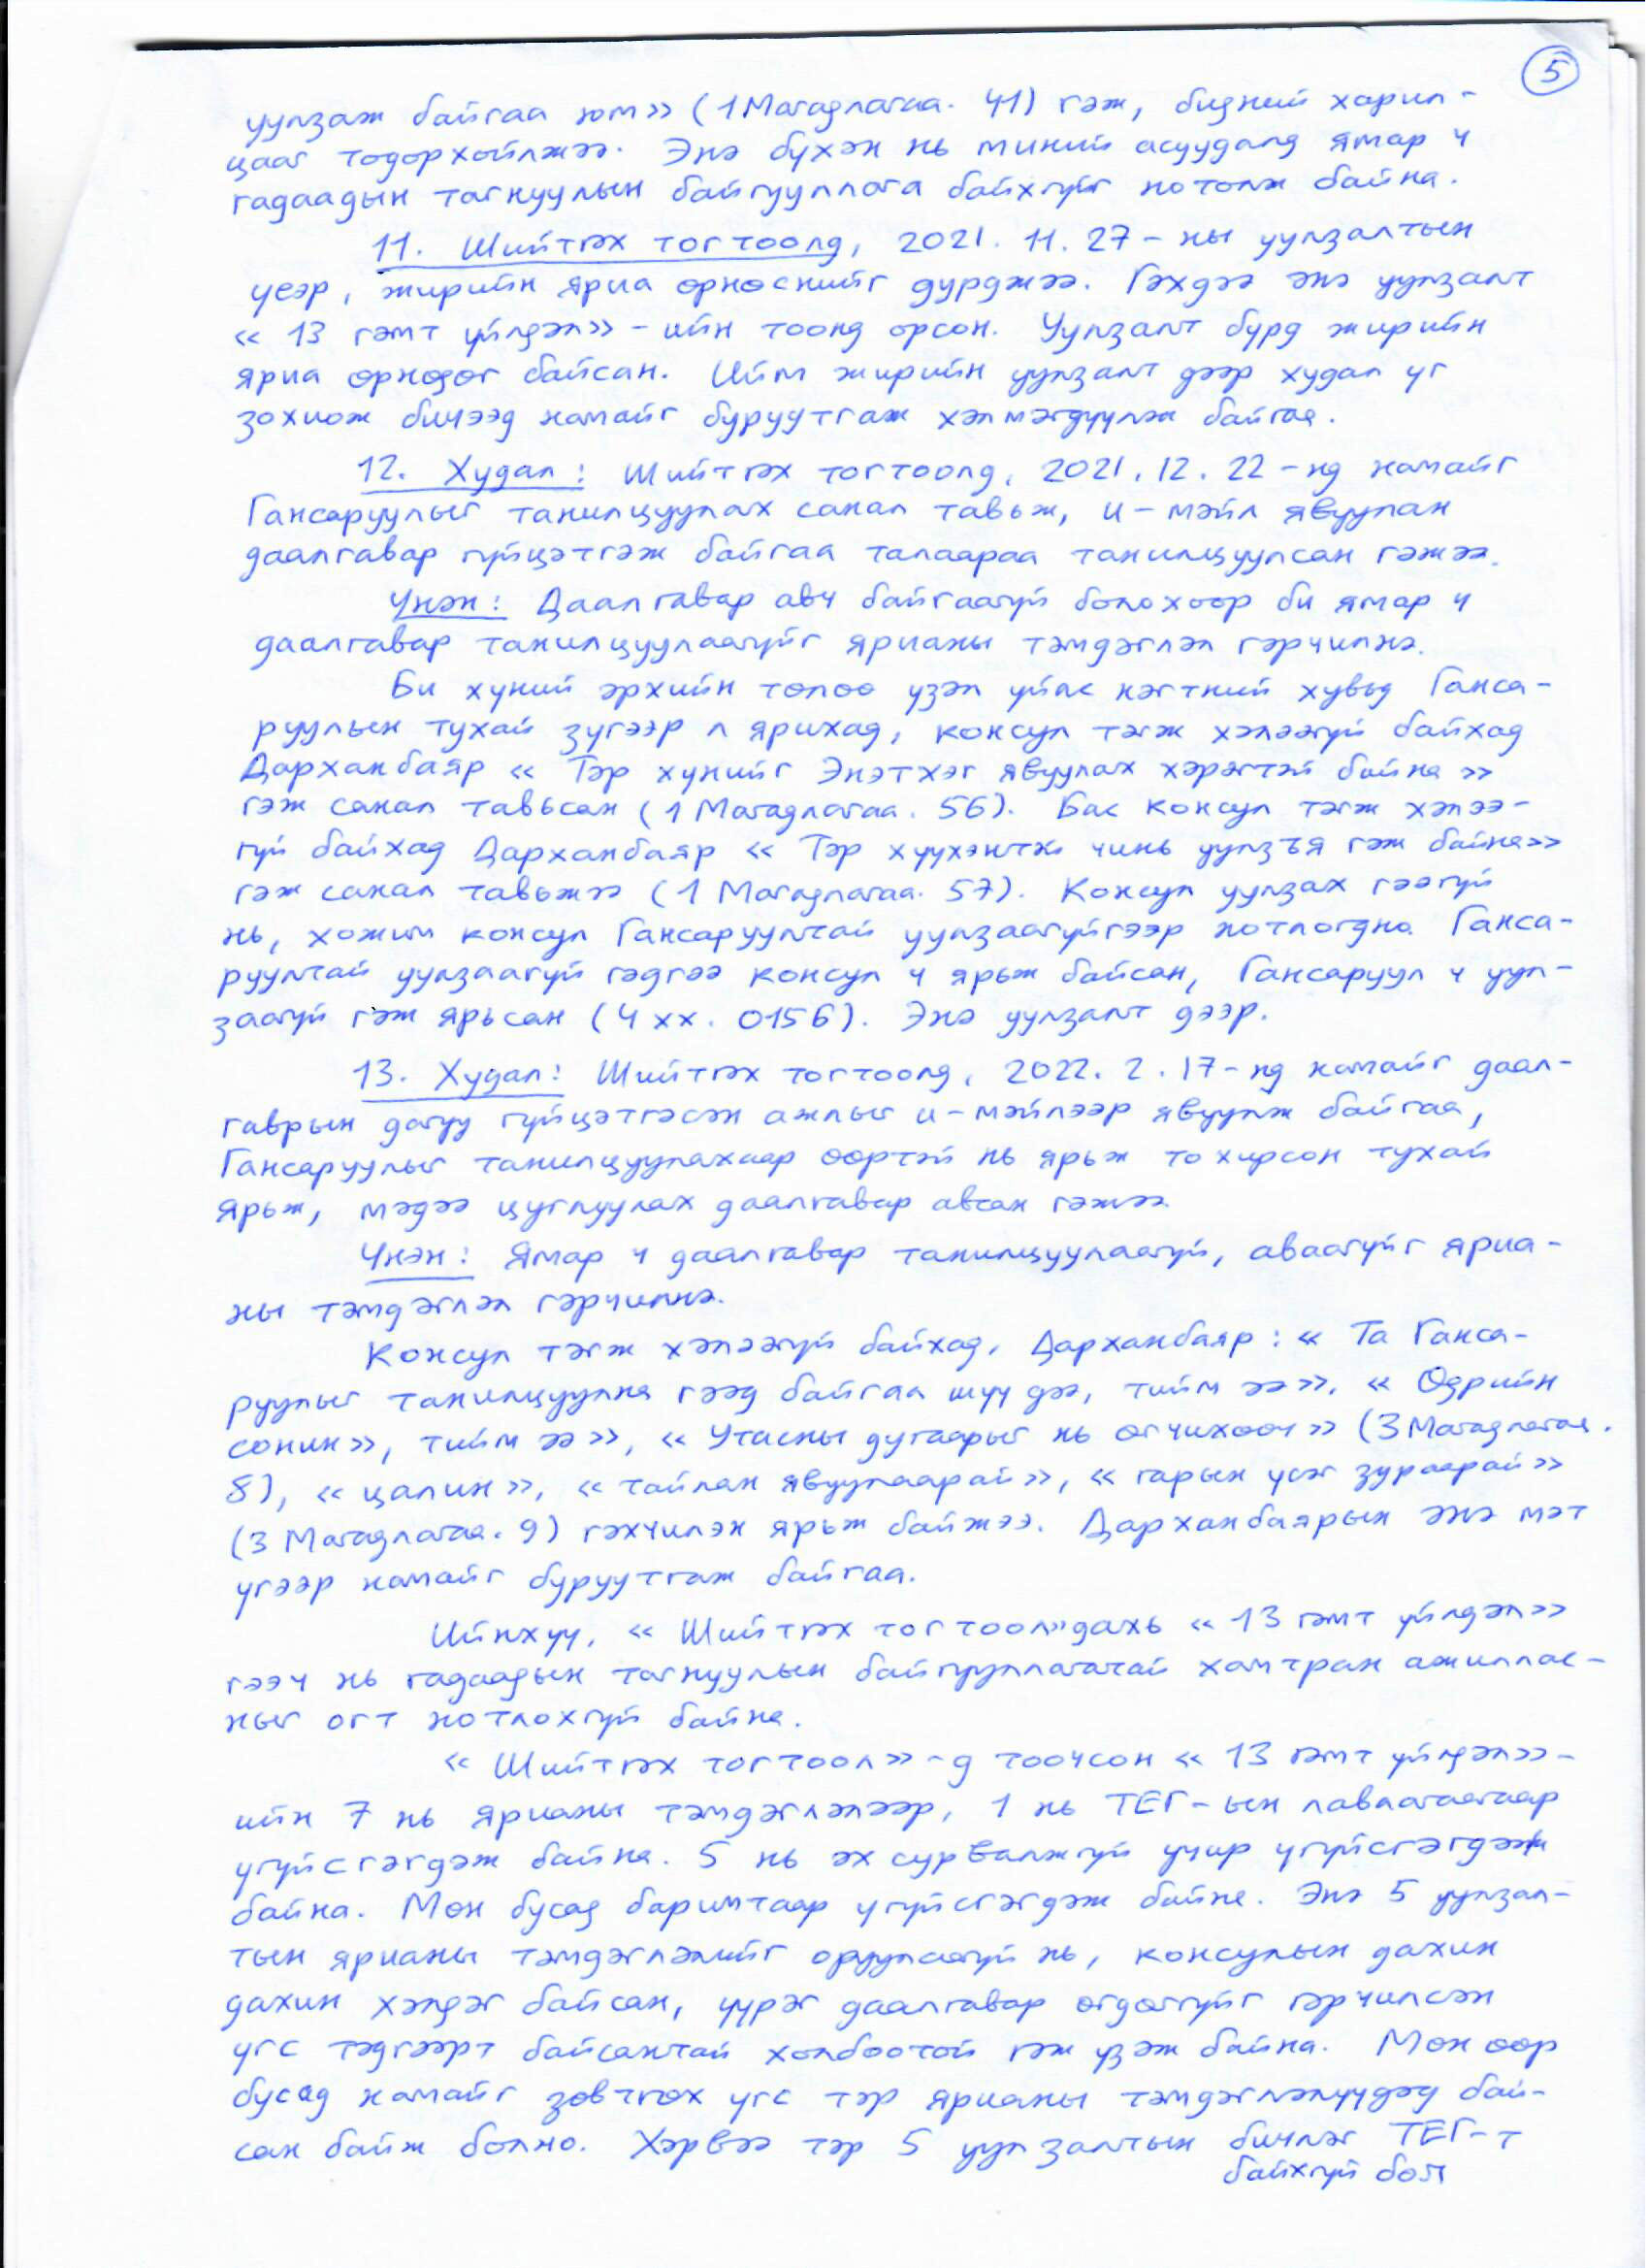 5
уулзаж байгаа юм» (1 Магадлагаа. 41) гэж, бидний харил-
цааг тодорхойлжээ. Энэ бүхэн нь миний асуудалд ямар ч
гадаадын тагнуулын байгууллага байхгүйг нотолж байна.
11. Шийтгэх тогтоолд, 2021. 11. 27-ны уулзалтын
үеэр, жирийн яриа өрнөснийг дурджээ. Гэхдээ энэ уулзалт
«13 гэмт үйлдэл»-ийн тоонд орсон. Уулзалт бүрд жирийн
яриа өрнөдөг байсан. Ийм жирийн уулзалт дээр худал үг
зохиож бичээд намайг буруутгаж хэлмэгдүүлж байгаа.
12. Худал: Шийтгэх тогтоолд, 2021. 12. 22-нд намайг
Гансаруулыг танилцуулах санал тавьж, и-мэйл явуулан
даалгавар гүйцэтгэж байгаа талаараа танилцуулсан гэжээ.
Үнэн: Даалгавар авч байгаагүй болохоор би ямар ч
даалгавар танилцуулаагүйг ярианы тэмдэглэл гэрчилнэ.
Би хүний эрхийн төлөө үзэл уйас нэгтний хувьд Ганса-
руулын тухай зүгээр л ярихад, консул тэгж хэлээгүй байхад
Дарханбаяр «Тэр хүнийг Энэтхэг явуулах хэрэгтэй байна»
гэж санал тавьсан (1 Магадлагаа. 56). Бас консул тэгж хэлээ-
гүй байхад Дарханбаяр «Тэр хүүхэнтэй чинь уулзъя гэж байна»
гэж санал тавьжээ (1 Магадлагаа. 57). Консул уулзах гээгүй
нь, хожим консул Гансаруултай уулзаагүйгээр нотлогдно. Ганса-
руултай уулзаагүй гэдгээ консул ч ярьж байсан, Гансаруул ч уул-
заагүй гэж ярьсан (4 хх. 0156). Энэ уулзалт дээр.
13. Худал: Шийтгэх тогтоолд, 2022. 2. 17-нд намайг даал-
гаврын дагуу гүйцэтгэсэн ажлыг и-мэйлээр явуулж байгаа,
Гансаруулыг танилцуулахаар өөртэй нь ярьж тохирсон тухай
ярьж, мэдээ цуглуулах даалгавар авсан гэжээ.
Үнэн: Ямар ч даалгавар танилцуулаагүй, аваагүйг яриа-
ны тэмдэглэл гэрчилнэ.
Консул тэгж хэлээгүй байхад, Дарханбаяр: «Та Ганса-
руулыг танилцуулна гээд байгаа шүү дээ, тийм ээ», «Өдрийн
сонин», тийм ээ», «Утасны дугаарыг нь өгчихөөч» (3 Магадлагаа.
8), «цалин», «тайлан явуулаарай», «гарын үсэг зураарай»
(3 Магадлагаа. 9) гэхчилэн ярьж байжээ. Дарханбаярын энэ мэт
үгээр намайг буруутгаж байгаа.
Ийнхүү, «Шийтгэх тогтоол»дахь «13 гэмт үйлдэл»
гээч нь гадаадын тагнуулын байгууллагатай хамтран ажиллас-
ныг огт нотлохгүй байна.
«Шийтгэх тогтоол»-д тоочсон «13 гэмт үйлдэл»-
ийн 7 нь ярианы тэмдэглэлээр, 1 нь ТЕГ-ын лавлагаагаар
үгүйсгэгдэж байна. 5 нь эх сурвалжгүй учир үгүйсгэгдэж
байна. Мөн бусад баримтаар үгүйсгэгдэж байна. Энэ 5 уулзал-
тын ярианы тэмдэглэлийг оруулаагүй нь, консулын дахин
дахин хэлдэг байсан, үүрэг даалгавар өгдөггүйг гэрчилсэн
үгс тэдгээрт байсантай холбоотой гэж үзэж байна. Мөн өөр
бусад намайг зөвтгөх үгс тэр ярианы тэмдэглэлүүдэд бай-
сан байж болно. Хэрвээ тэр 5 уулзалтын бичлэг ТЕГ-т
байхгүй бол